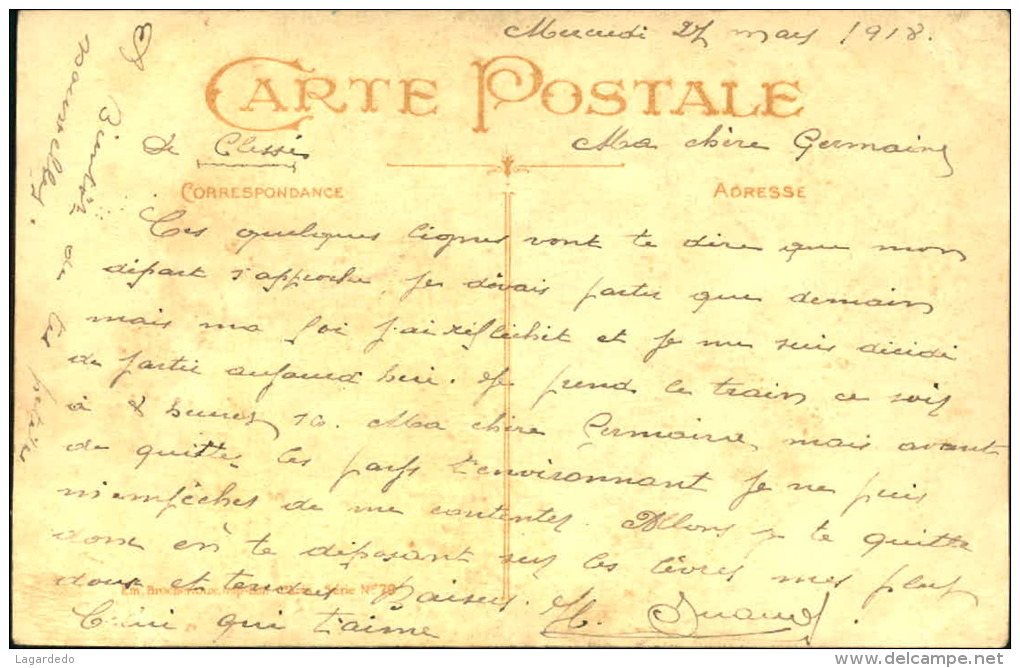 Mercredi 27 mars 1918.
CARTE POSTALE
de Clessé
Ma chère Germaine
CORRESPONDANCE
ADRESSE
Ces quelques lignes vont te dire que mon
départ s'approche, je devais partir que demain
mais ma foi j'ai réfléchit et je me suis décidé
de partir aujourd hui. Je prend le train ce soir
à 8 heures 10. Ma chère Germaine, mais avant
de quitter les pays t'environnant je ne puis
m'empêcher de me contenter. Allons je te quitte
donc en te déposant sur les lèvres mes plus
doux et tendres Baisers.
Celui qui t'aime
Em. Série No 70
Et Bientôt de tes
nouvelles.
Lagardedo
delcampe.net